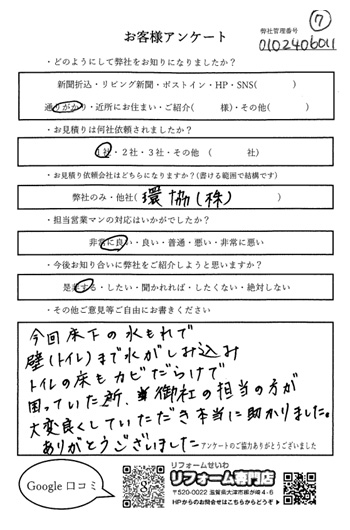 ⑦
お客様アンケート
弊社管理番号
0102406011
・どのようにして弊社をお知りになりましたか？
新聞折込・リビング新聞・ポストイン・HP・SNS(　　　)
通りがかり・近所にお住まい・ご紹介(　　様)・その他(　　)
・お見積りは何社依頼されましたか？
1社・2社・3社・その他　(　　　社)
・お見積り依頼会社はどちらになりますか？(書ける範囲で結構です)
弊社のみ・他社(環協(株)　　　)
・担当営業マンの対応はいかがでしたか？
非常に良い・良い・普通・悪い・非常に悪い
・今後お知り合いに弊社をご紹介しようと思いますか？
是非する・したい・聞かれれば・したくない・絶対しない
・その他ご意見等ご自由にお書きください
今回床下の水もれで
壁(トイレ)まで水がしみ込み
トイレの床もカビだらけで
困っていた所、御社の担当の方が
大変良くしていただき本当に助かりました。
ありがとうございました
アンケートのご協力ありがとうございました
Google 口コミ
リフォームせいわ
リフォーム専門店
〒520-0022 滋賀県大津市柳が崎4-6
HPからのお問合せはこちらからどうぞ